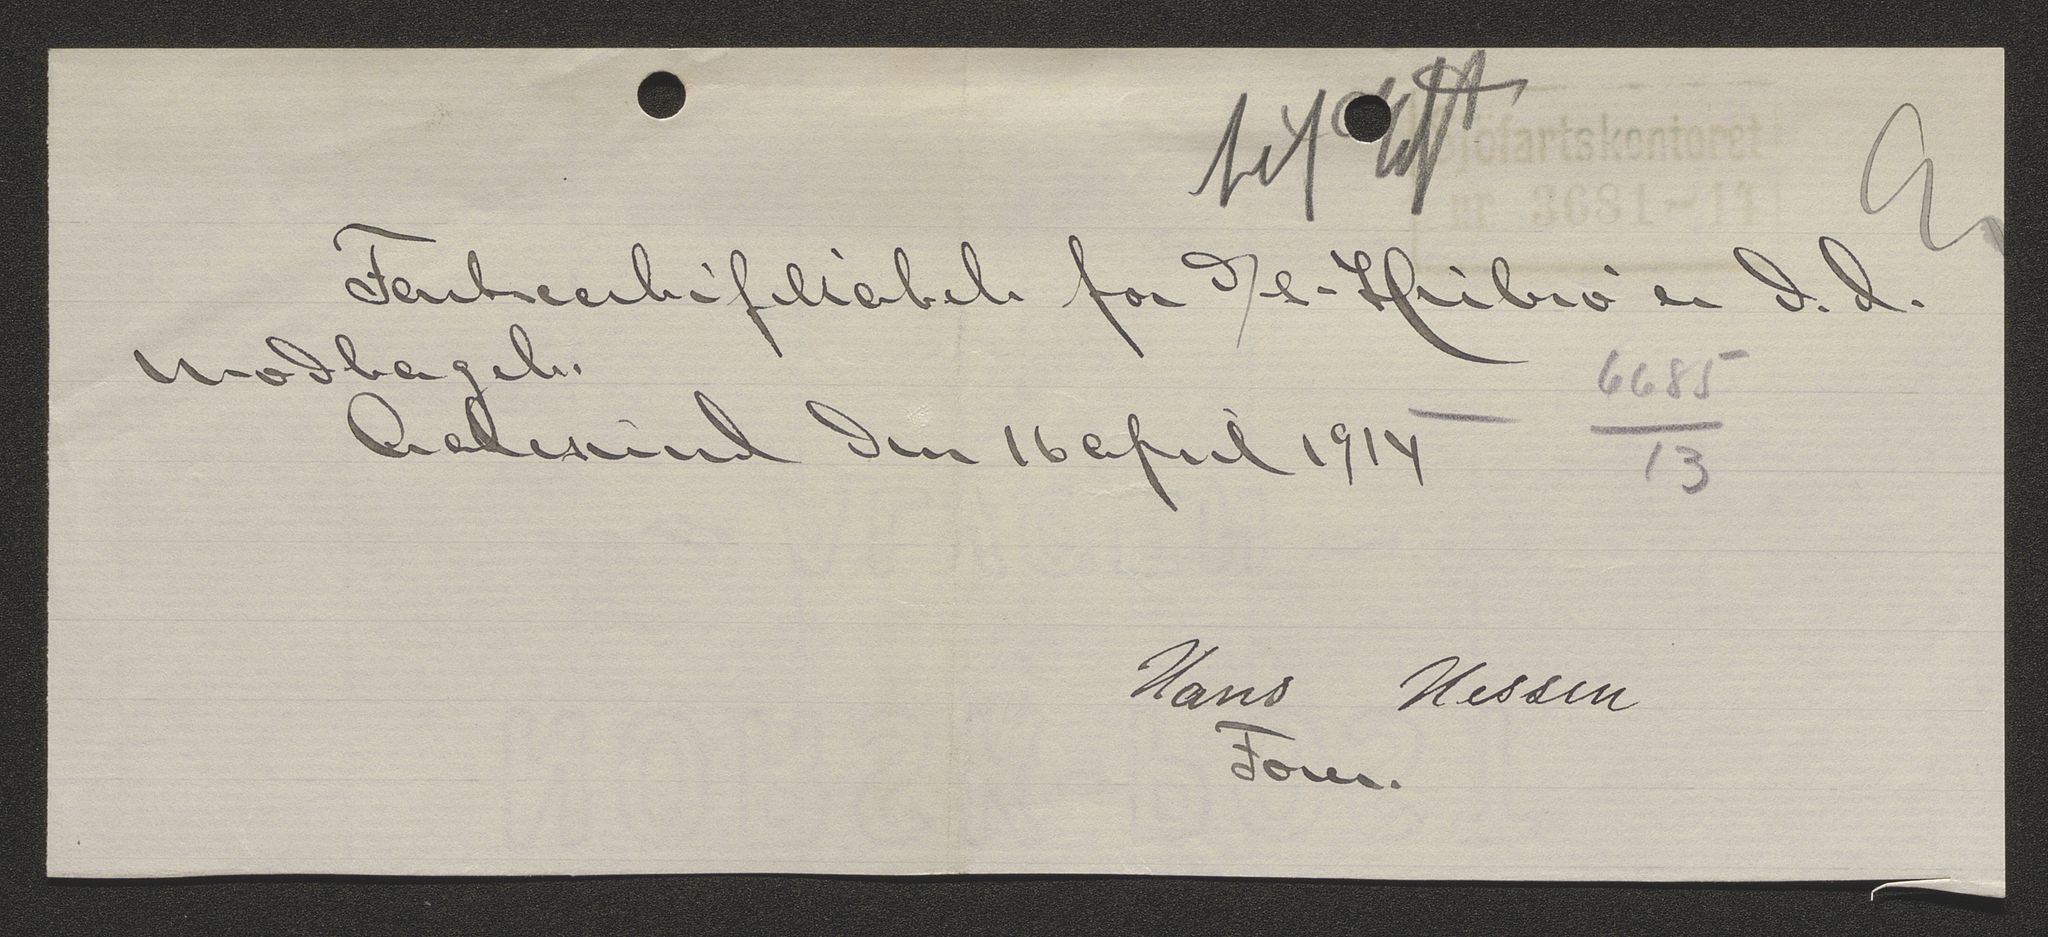 Sjöfartskontoret
nr 3681-14
Fartscertifikatet for d/s. Heibrö er d. d.
modtaget.
Aalesund den 16 april 1914
6685
13
Hans Hessen
Förer.